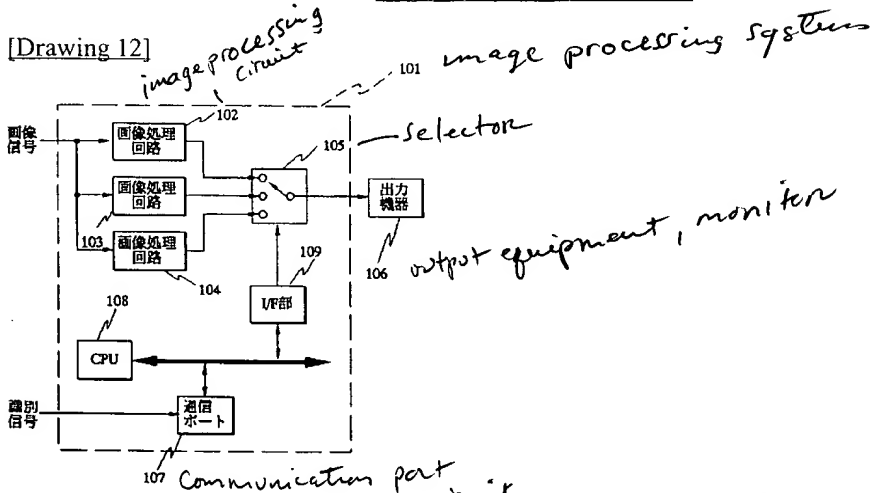 [Drawing 12]
image processing
circuit
101
image processing system
102
画像
信号
画像処理
回路
105
selector
画像処理
回路
出力
機器
103
画像処理
回路
106
output equipment, monitor
104
109
I/F部
108
CPU
識別
信号
通信
ポート
107
Communication port